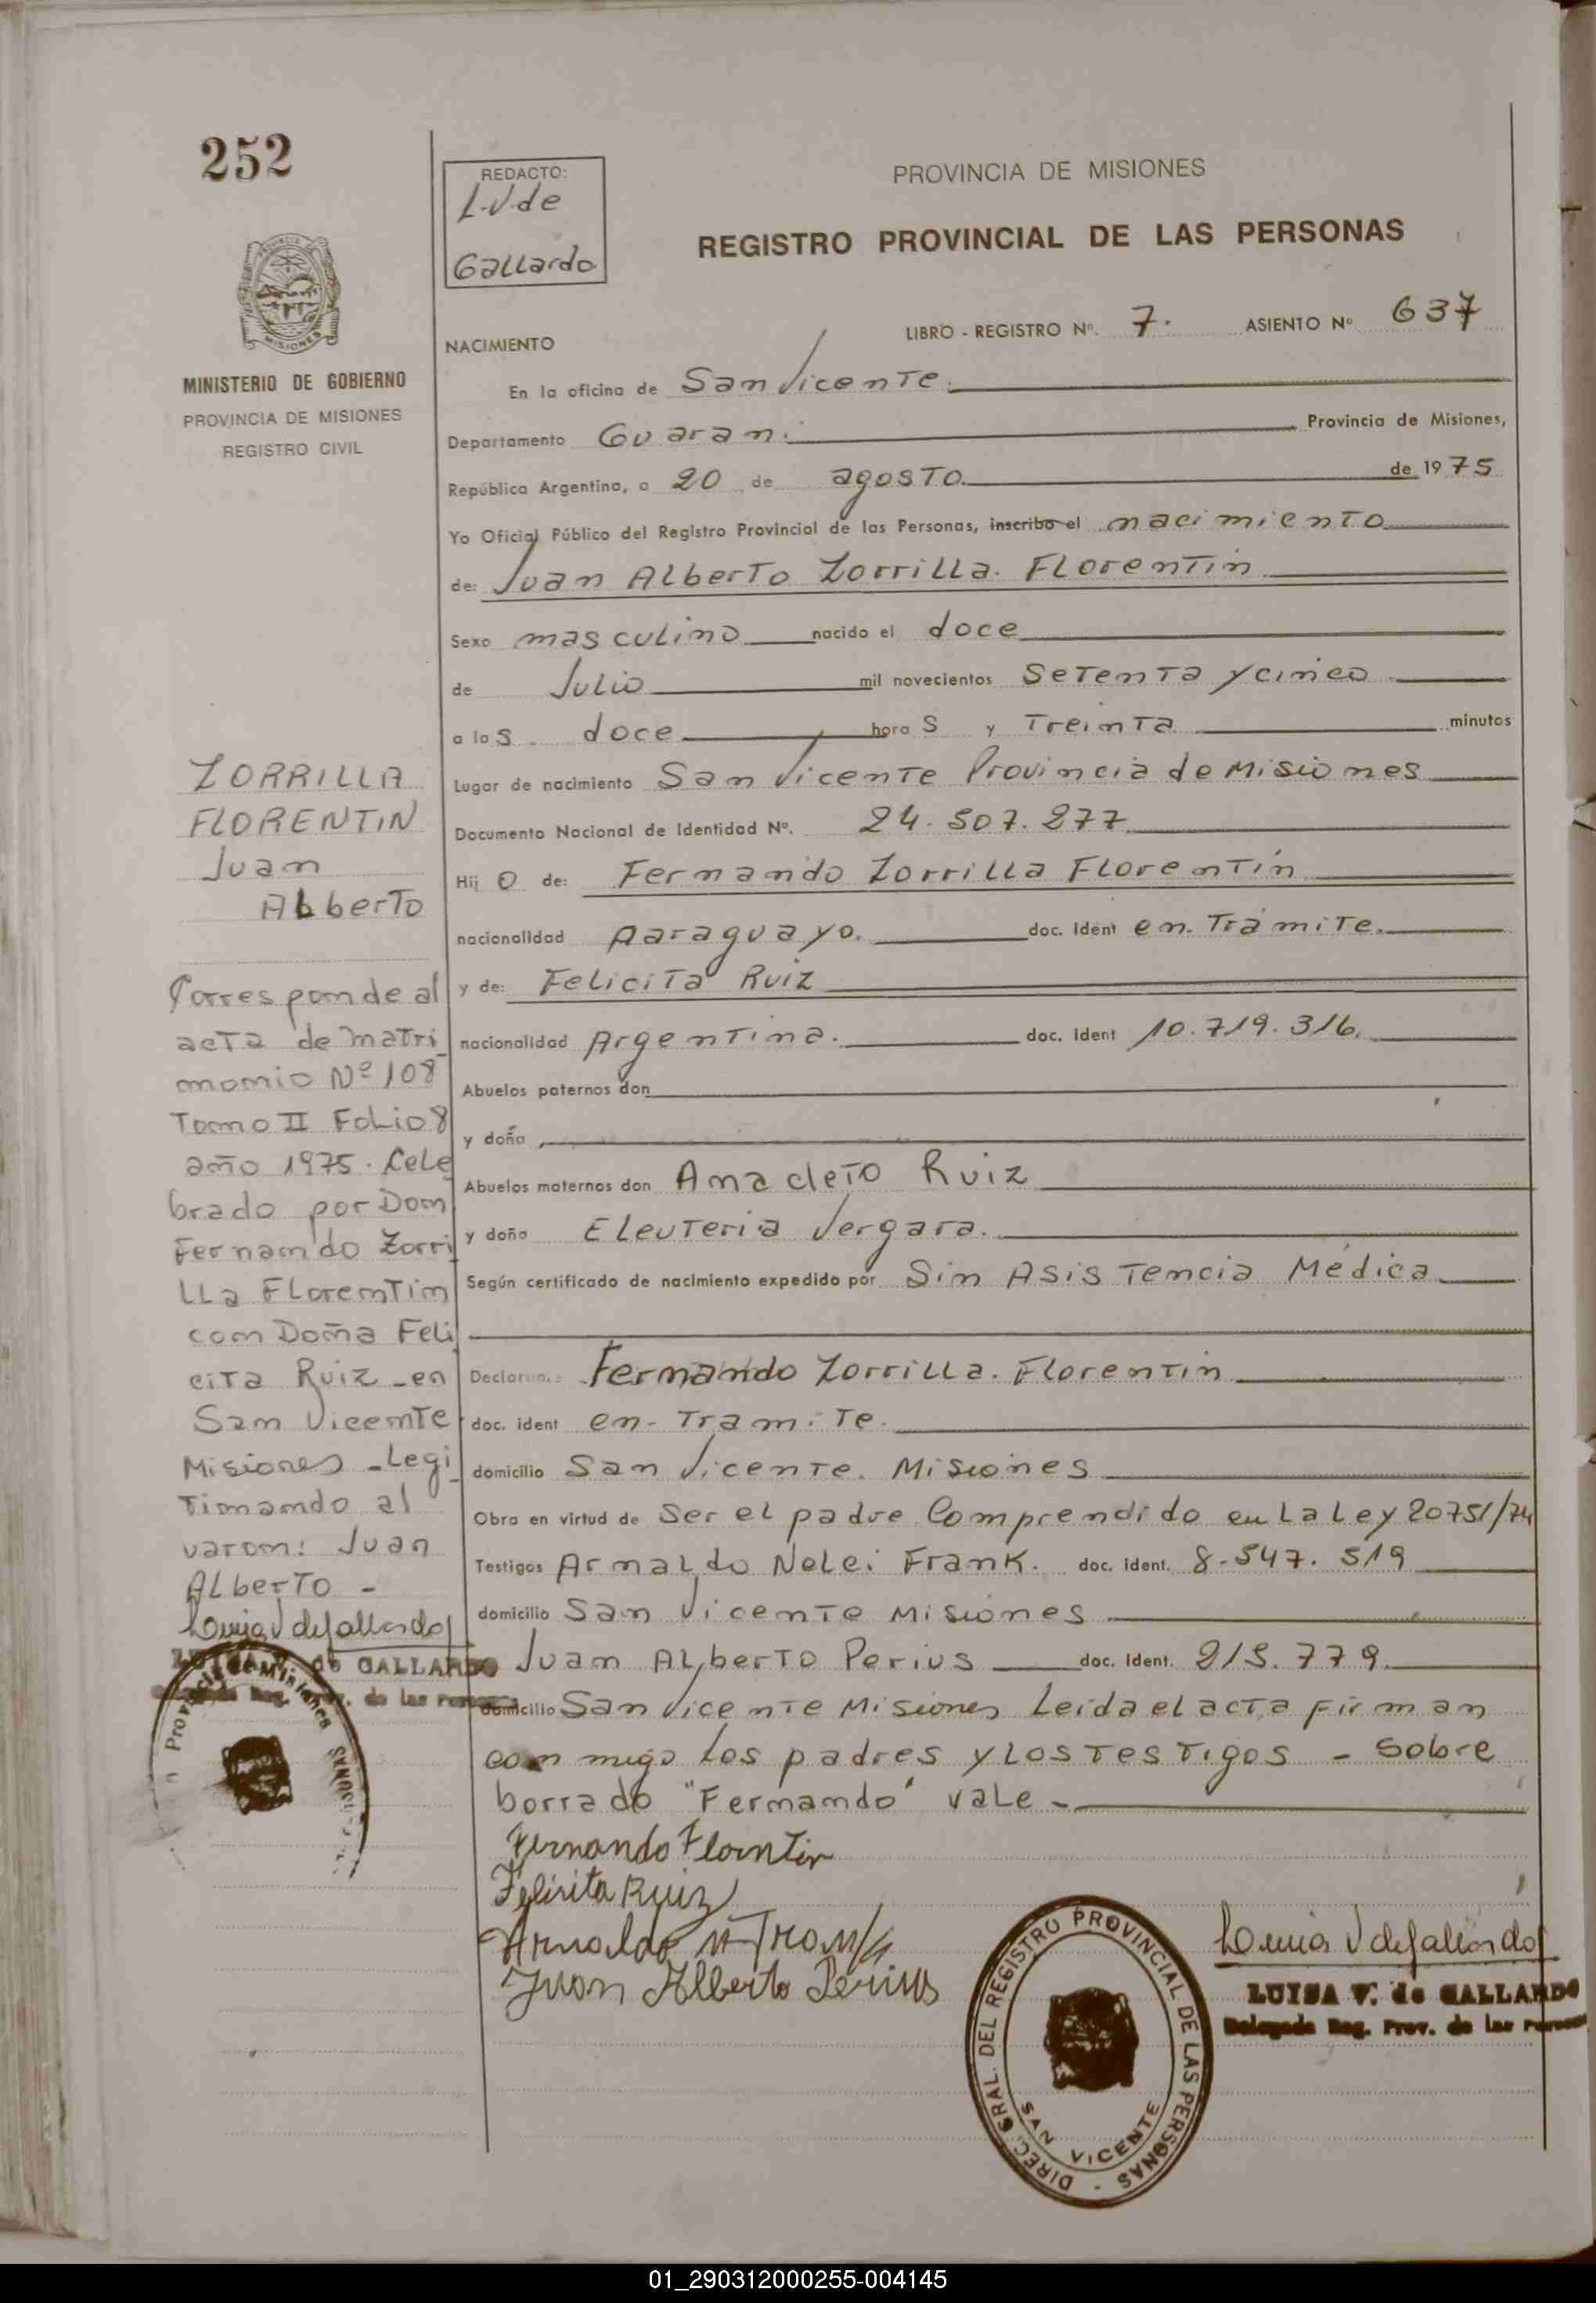 252
REDACTO:
L.V. de
Gallardo
PROVINCIA DE MISIONES
REGISTRO PROVINCIAL DE LAS PERSONAS
MINISTERIO DE GOBIERNO
PROVINCIA DE MISIONES
REGISTRO CIVIL
LIBRO - REGISTRO Nº. 7. ASIENTO Nº 637
NACIMIENTO
En la oficina de San Vicente.
Departamento Guarani Provincia de Misiones,
República Argentina, a 20 de agosto de 1975
Yo Oficial Público del Registro Provincial de las Personas, inscribo el nacimiento
de: Juan Alberto Zorrilla. Florentin
Sexo masculino nacido el doce
de Julio mil novecientos Setenta y cinco
a las doce horas y Treinta minutos
Lugar de nacimiento San Vicente Provincia de Misiones
Documento Nacional de Identidad Nº. 24.507.277
Hijo de: Fernando Zorrilla Florentín
nacionalidad Paraguayo. doc. Ident en. Trámite.
y de: Felicita Ruiz
nacionalidad Argentina. doc. Ident 10.719.316.
Abuelos paternos don
y doña
Abuelos maternos don Anacleto Ruiz
y doña Eleuteria Vergara.
Según certificado de nacimiento expedido por Sin Asistencia Médica
Declaran: Fernando Zorrilla. Florentin
doc. ident en- Tramite.
domicilio San Vicente. Misiones
Obra en virtud de Ser el padre Comprendido en La Ley 20751/74
Testigos Arnaldo Nelci Frank. doc. ident. 8.547.519
domicilio San Vicente Misiones
Juan Alberto Perius doc. Ident. 215.779.
domicilio San Vicente Misiones Leida el acta firman
conmigo los padres y los testigos - Sobre
borrado "Fernando" vale -
ZORRILLA
FLORENTIN
Juan
Alberto
Corresponde al
acta de matri
monio Nº 108
Tomo II Folio 8
año 1975. Cele
brado por Don
Fernando Zorri
lla Florentin
con Doña Feli
cita Ruiz - en
San Vicente
Misiones - Legi
timando al
varon: Juan
Alberto -
Luisa V de Gallardo
de GALLARDO
Reg. Prov. de las Personas
Provincia de Misiones
Fernando Florntin
Felisita Ruiz
Arnaldo N Frank
Juan Alberto Perius
DIREC. GRAL. DEL REGISTRO PROVINCIAL DE LAS PERSONAS -
SAN VICENTE
Luisa V de Gallardo
LUISA V. de GALLARDO
Delegada Reg. Prov. de las Personas
01_290312000255-004145